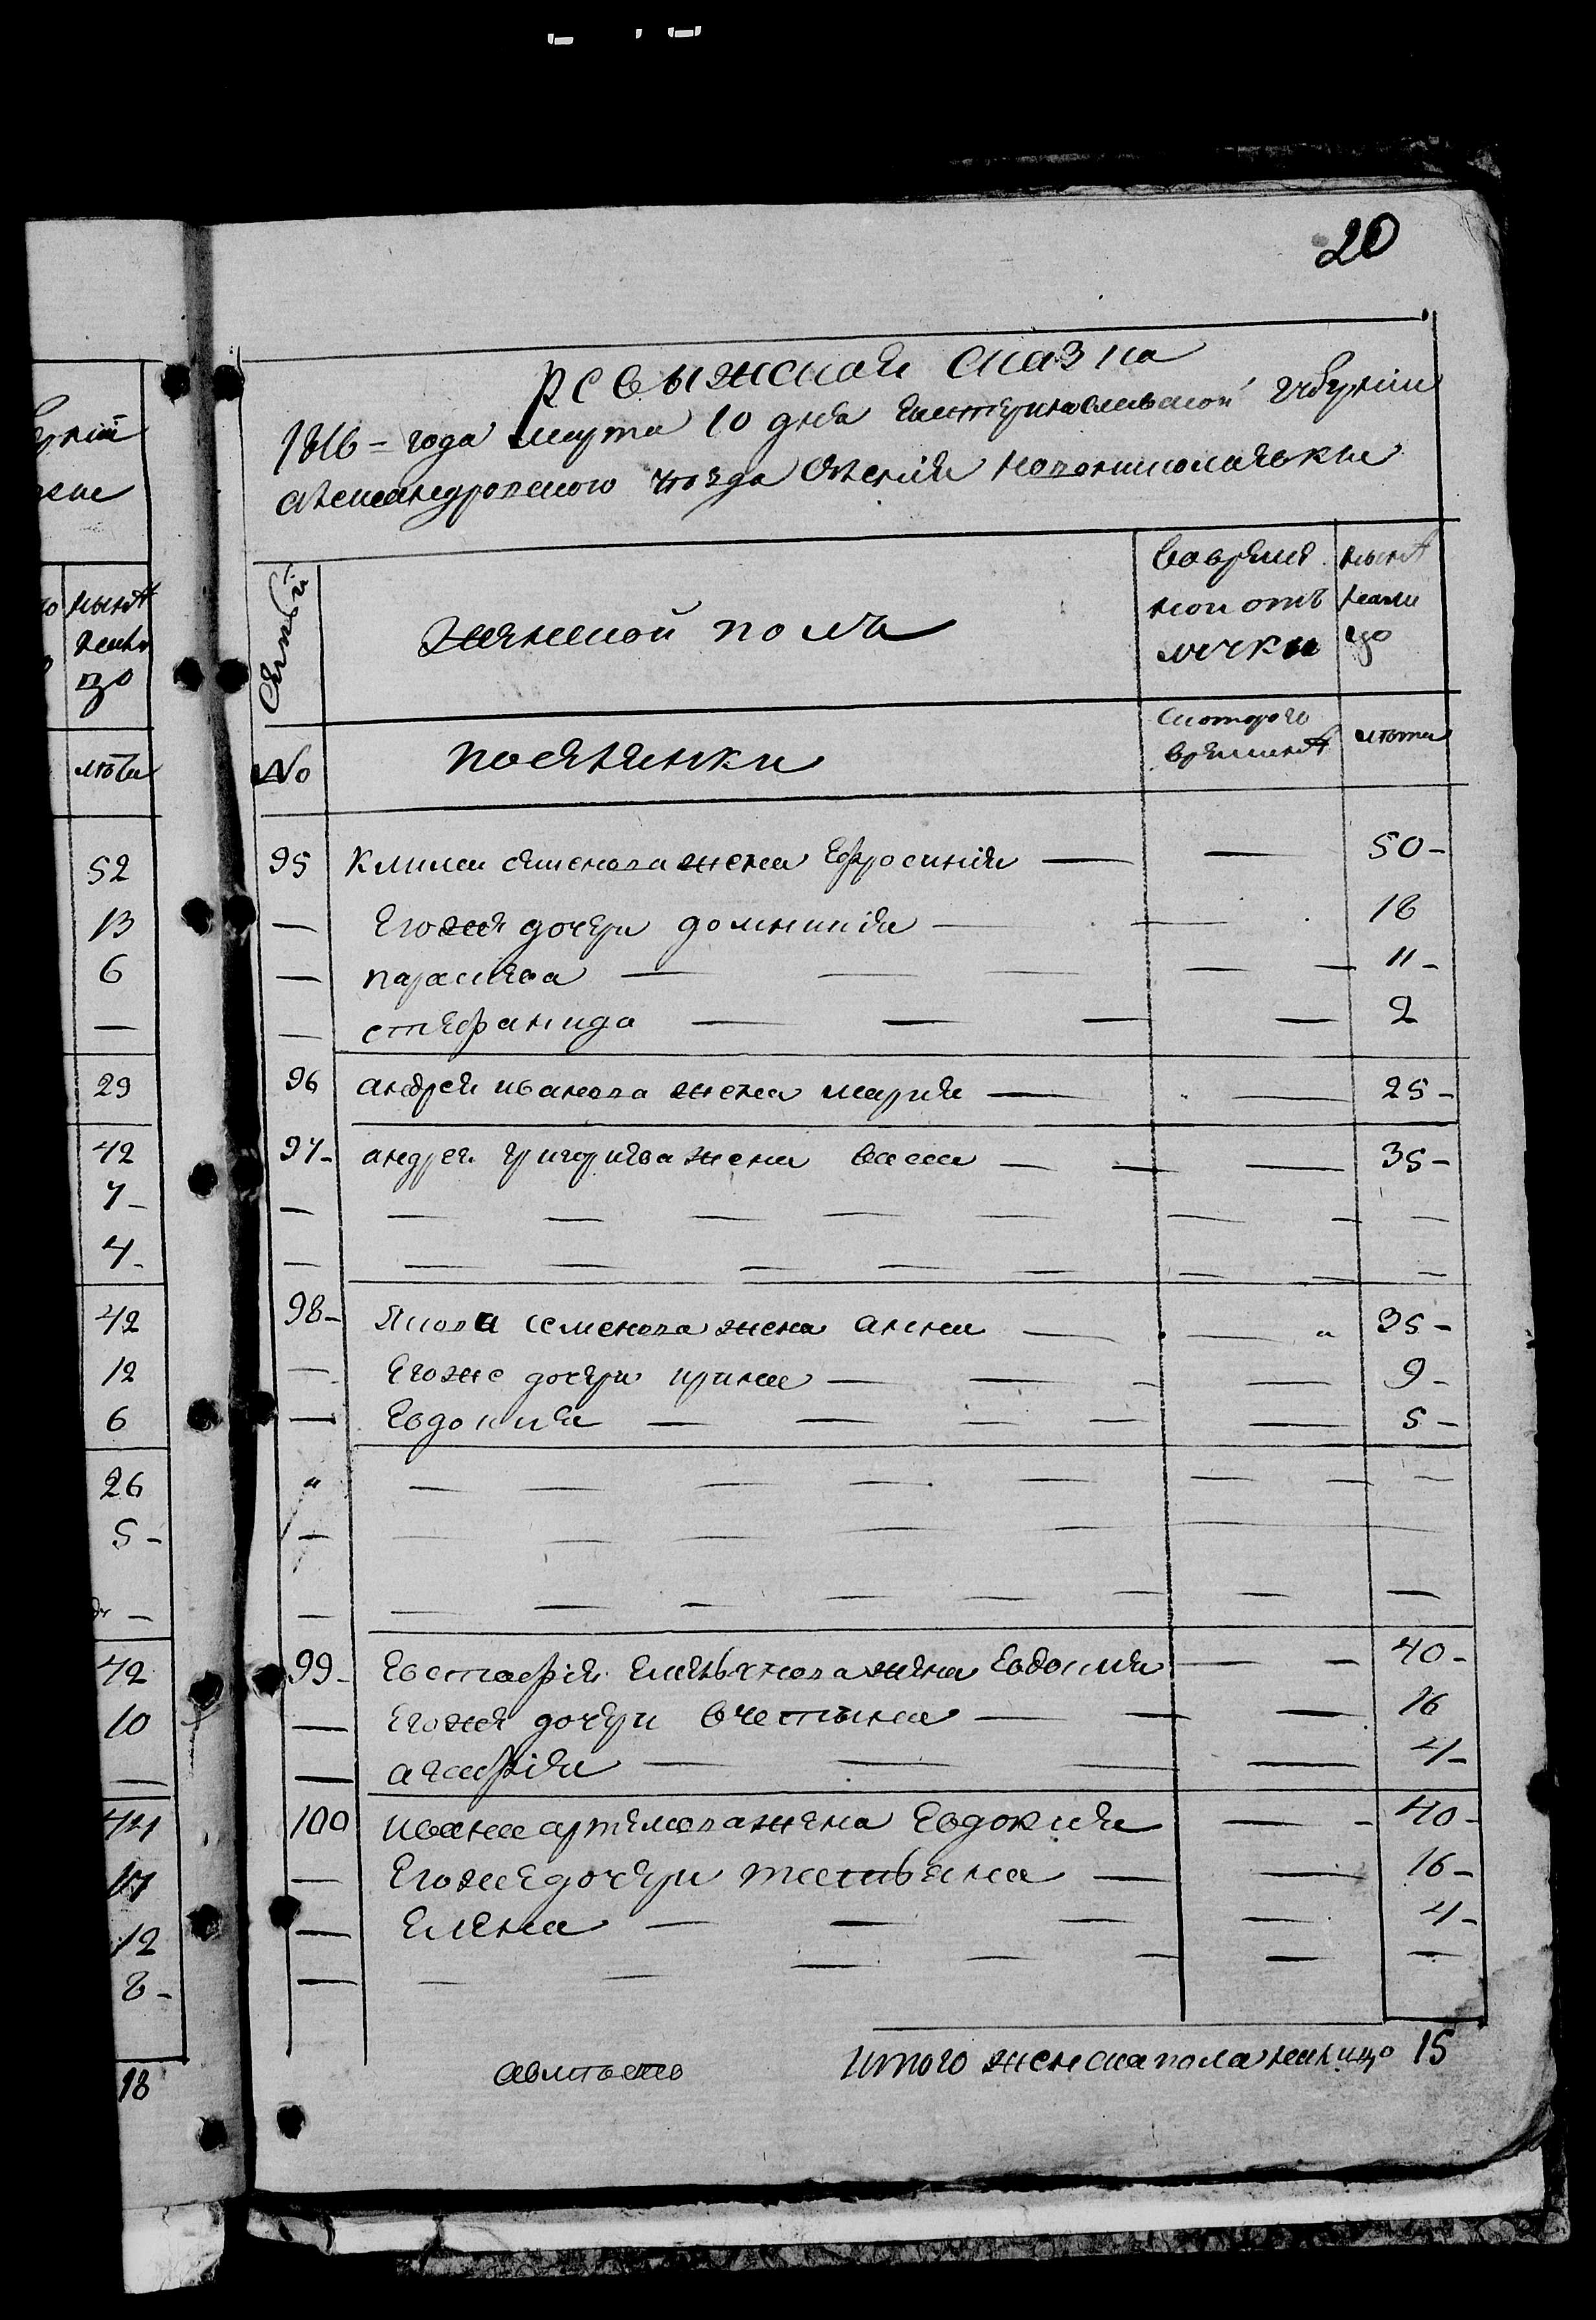 20
Ревыжская сказка
1816 = года марта 10 дня Екатеринославской губернии
Александровского уезда селения Новониколаевки
семьи
женской полъ
во время
кой отъ
лучки
ныне
нали
цо
No
поселянки
с которого
времини
лета
95 Клима Семенова жена Ефросиния — — 50-
— Егоже дочери домникия — — 16
— параскева — — — — — 11-
— стефанида — — — — 2
96 андрея иванова жена мария — — 25-
97- андрея григориева жена васса — — — 35-
98- Якова семенова жена анна — — 35-
— Егоже дочери ирина — — — — 9-
— Евдокия — — — — — 5-
99- Евстафия Емельянова жена Евдокия — — 40-
— Егоже дочери устиния — — — 16
— агафия — — — 4-
100 ивана артемова жена Евдокия — - 40-
— Егоже дочери татьяна — — 16-
— Елена — — — — 4-
итого женска пола налицо 15
нынѣ
цо
лѣта
52
13
6
—
29
42
7-
4-
42
12
6
26
5-
42
10
—
44
17
12
8-
18